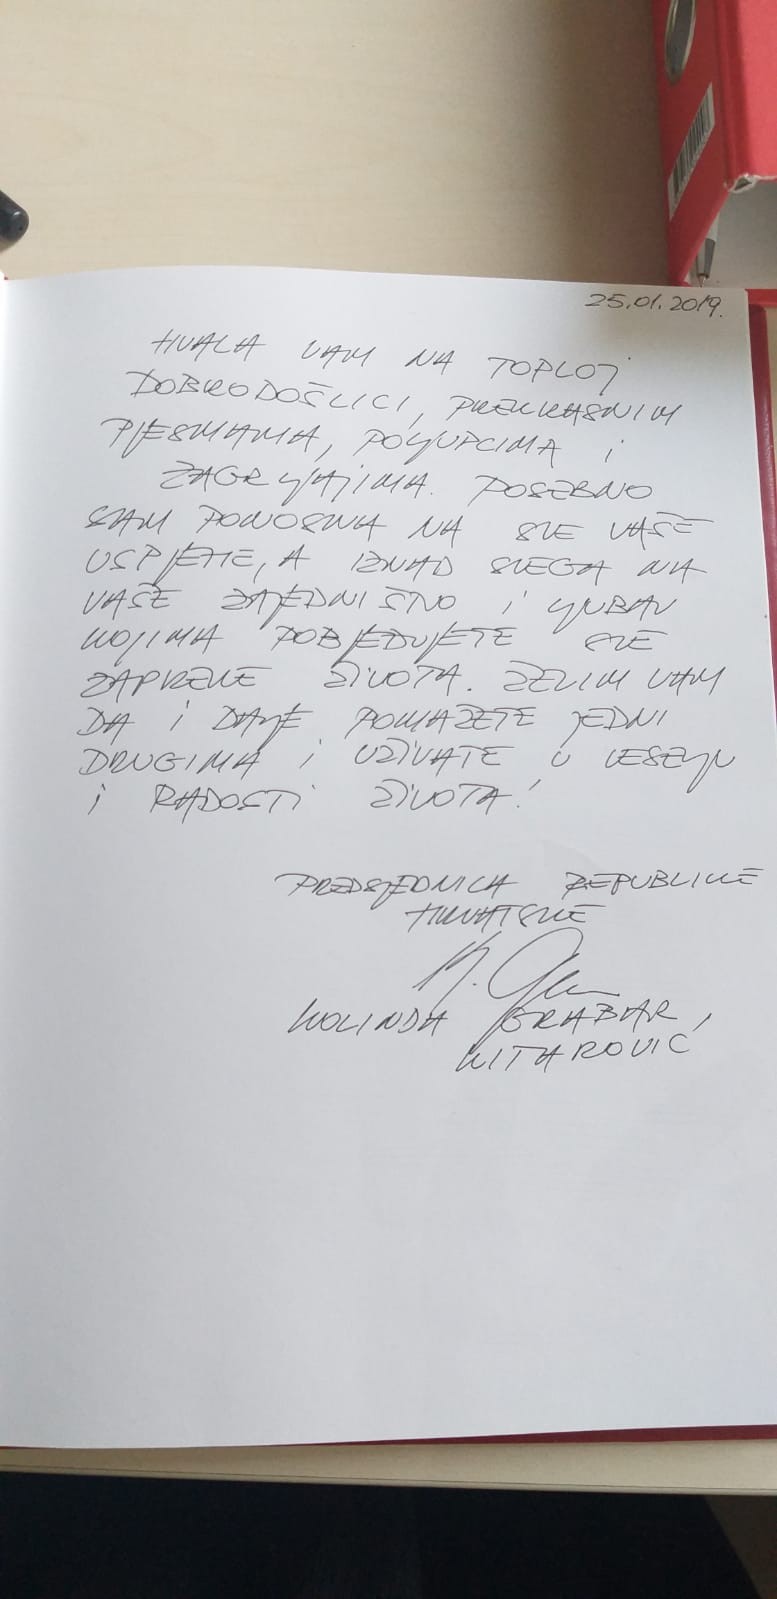 25.01.2019.
HVALA VAM NA TOPLOJ
DOBRODOŠLICI, PREKRASNIM
PJESMAMA, POLJUPCIMA I
ZAGRLJAJIMA. POSEBNO
SAM PONOSNA NA SVE VAŠE
USPJEHE, A IZNAD SVEGA NA
VAŠE ZAJEDNIŠTVO I LJUBAV
KOJIMA POBJEĐUJETE SVE
ZAPREKE ŽIVOTA. ŽELIM VAM
DA I DALJE POMAŽETE JEDNI
DRUGIMA I UŽIVATE U VESELJU
I RADOSTI ŽIVOTA!
PREDSJEDNICA REPUBLIKE
HRVATSKE
KOLINDA GRABAR
KITAROVIĆ